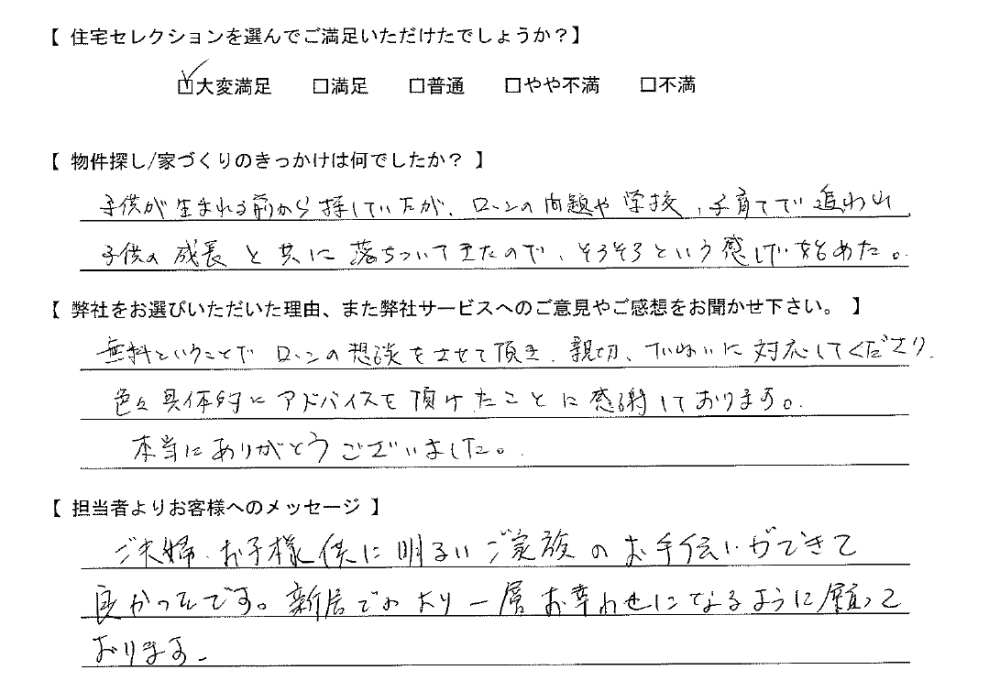 【 住宅セレクションを選んでご満足いただけたでしょうか？】
☑大変満足 □満足 □普通 □やや不満 □不満
【 物件探し/家づくりのきっかけは何でしたか？ 】
子供が生まれる前から探していたが、ローンの問題や学校、子育てで追われ、
子供の成長と共に落ちついてきたので、そろそろという感じで
【 弊社をお選びいただいた理由、また弊社サービスへのご意見やご感想をお聞かせ下さい。 】
無料ということでローンの相談をさせて頂き、親切、ていねいに対応してくださり、
色々具体的にアドバイスを頂けたことに感謝しております。
本当にありがとうございました。
【 担当者よりお客様へのメッセージ 】
ご夫婦、お子様供に明るいご家族のお手伝いができて
良かったです。新居でのより一層お幸わせになるように願って
おります。